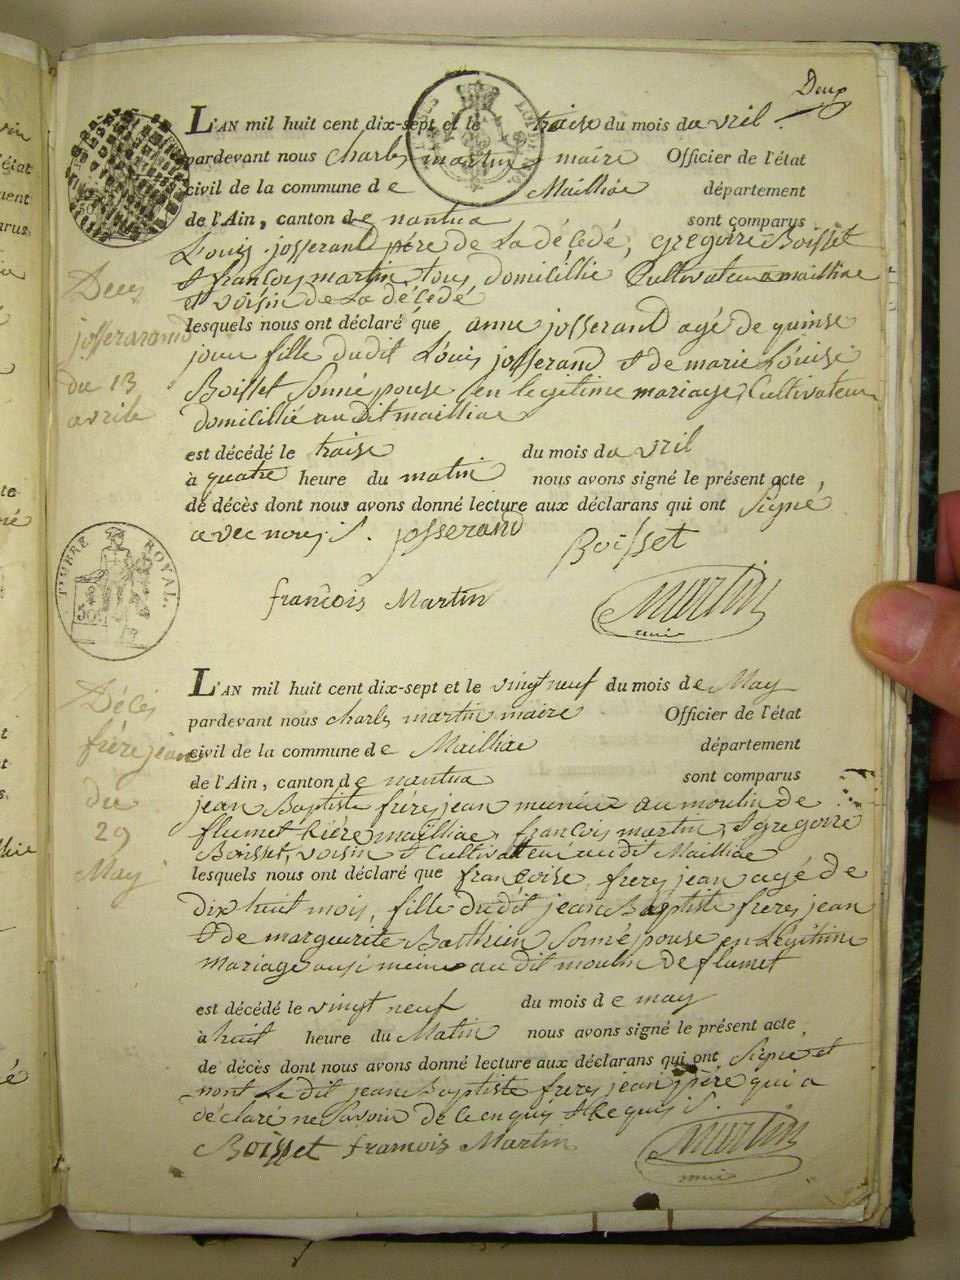 Deux
L'AN mil huit cent dix-sept et le traise du mois davril
pardevant nous charles martin maire Officier de l'état
civil de la commune de Mailliac département
de l'Ain, canton de nantua sont comparus
Louis josserand père de La décedé, gregoire Boisset
& françois martin tous domicillié Cultivateur a mailliac
et voisin de La décedé
lesquels nous ont déclaré que anne josserand agé de quinse
jour fille dudit Louis josserand & de marie Louise
Boisset Son népouse en legitime mariage Cultivateur
domicillié au dit mailliac
est décédé le traise du mois davril
à quatre heure du matin nous avons signé le présent acte
de décès dont nous avons donné lecture aux déclarans qui ont Signé
avec nous
josserand
Boisset
françois Martin
Martin
Deces
josserarand
du 13
avrile
TIMBRE ROYAL.
L'AN mil huit cent dix-sept et le vingt neuf du mois de May
pardevant nous charles martin maire Officier de l'état
civil de la commune de Mailliac département
de l'Ain, canton de nantua sont comparus
jean Baptiste frére jean munier au moulin de
flumet mailliac, françois martin, & gregoire
Boisset, voisin & Cultivateur audit Mailliac
lesquels nous ont déclaré que françoise frere jean agé de
dix huit mois, fille dudit jean Baptiste freres jean
& de marguerite Son népouse en Légitime
mariage au dit moulin de flumet
est décédé le vingt neuf du mois de may
à huit heure du Matin nous avons signé le présent acte
de décès dont nous avons donné lecture aux déclarans qui ont Signe et
nont Le dit jean Baptiste freres jean père qui a
déclaré ne Savoir de ce enquis
Boisset françois Martin
Martin
Décés
frére jean
du
29
May